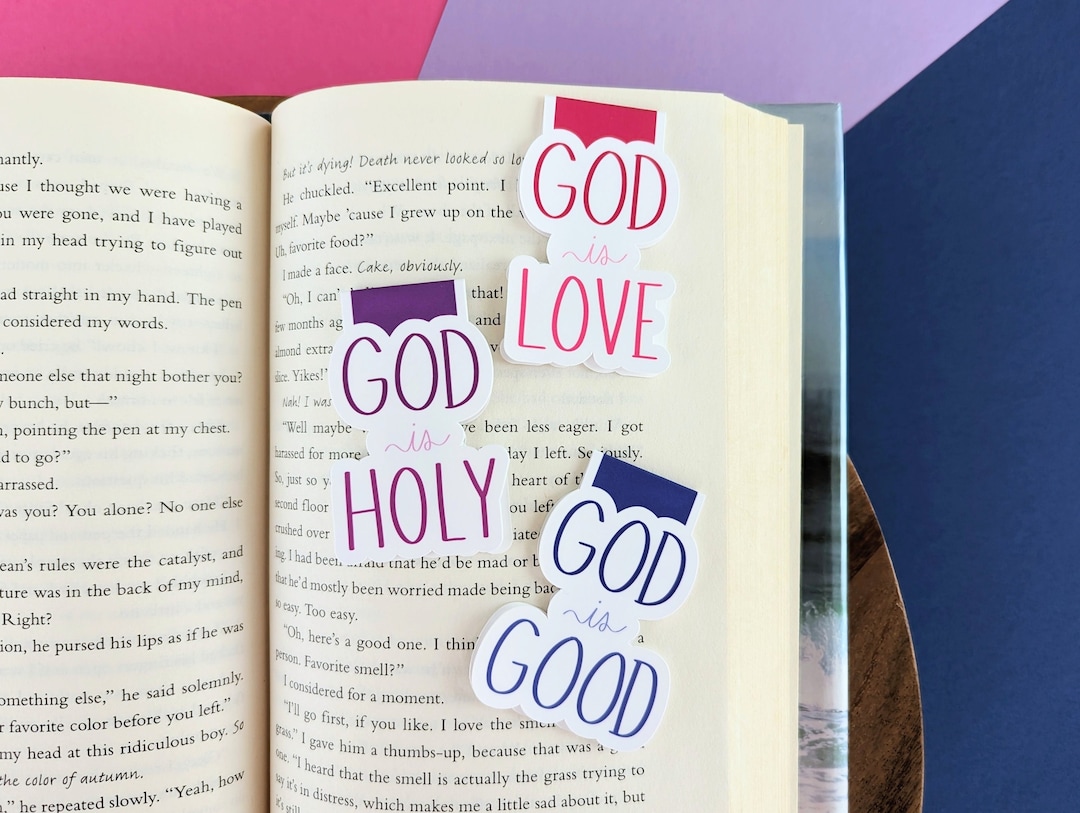 nantly.
use I thought we were having a
ou were gone, and I have played
in my head trying to figure out
ad straight in my hand. The pen
considered my words.
.
meone else that night bother you?
y bunch, but—”
n, pointing the pen at my chest.
d to go?”
arrassed.
was you? You alone? No one else
ean’s rules were the catalyst, and
ture was in the back of my mind,
Right?
ion, he pursed his lips as if he was
omething else,” he said solemnly.
r favorite color before you left.”
my head at this ridiculous boy. So
the color of autumn.
,” he repeated slowly. “Yeah, how
But it’s dying! Death never looked so lo
He chuckled. “Excellent point. I
myself. Maybe ’cause I grew up on the
Uh, favorite food?”
I made a face. Cake, obviously.
“Oh, I can’ that!
few months ag and
almond extra
slice. Yikes!”
Nah! I was
“Well maybe ve been less eager. I got
harassed for more day I left. Seriously.
So, just so y heart of t
second floor ou left
crushed over iate
ing. I had been afraid that he’d be mad or b
that he’d mostly been worried made being bac
so easy. Too easy. a
“Oh, here’s a good one. I thin
person. Favorite smell?”
I considered for a moment.
“I’ll go first, if you like. I love the smell
grass.” I gave him a thumbs-up, because that was a good
one. “I heard that the smell is actually the grass trying to
say it’s in distress, which makes me a little sad about it, but
it’s still
GOD
is
LOVE
GOD
is
HOLY
GOD
is
GOOD